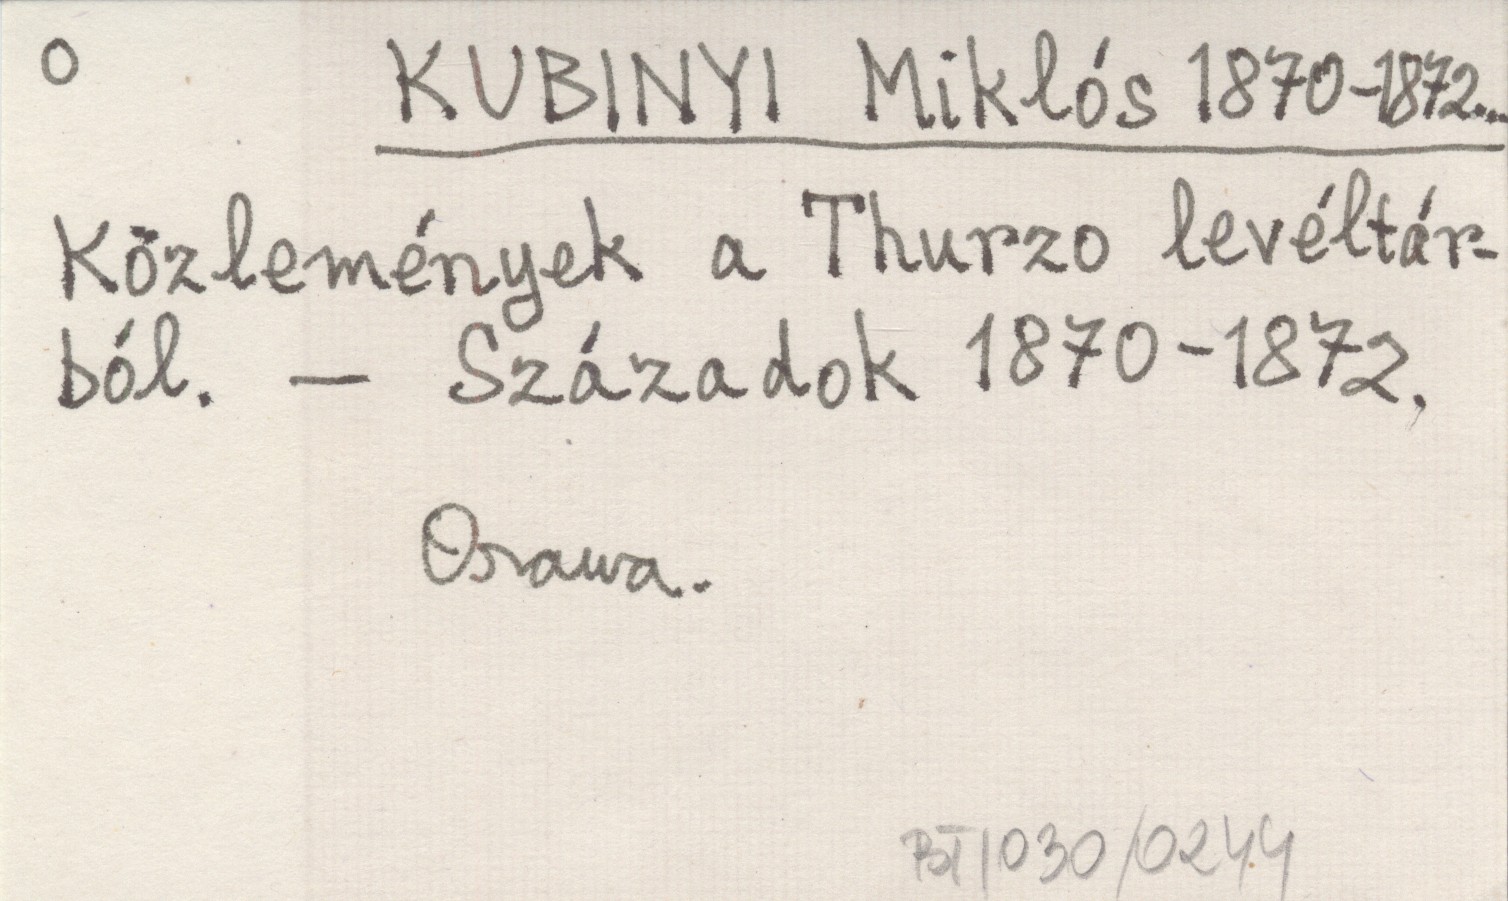 O KUBINYI Miklós 1870-1872...
Közlemények a Thurzo levéltár-
ból. — Századok 1870-1872.
Orawa.
BT/030/0244